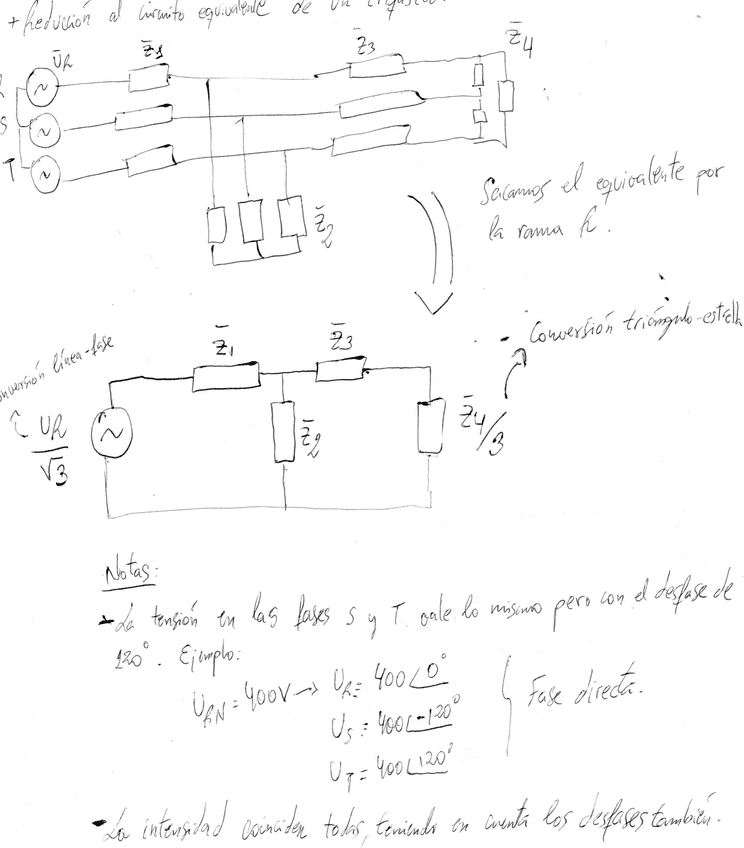 + Reducción al circuito equivalente de un trifásico
R
Ū_R
Z̄1
Z̄3
Z̄4
S
T
Z̄2
Sacamos el equivalente por
la rama R.
Conversión línea-fase
Z̄1
Z̄3
- Conversión triángulo-estrella
U_R/√3
Z̄2
Z̄4/3
Notas:
- La tensión en las fases S y T vale lo mismo pero con el desfase de
120°. Ejemplo:
U_RN = 400V → U_R = 400∠0°
U_S = 400∠-120°
U_T = 400∠120°
Fase directa.
- La intensidad coinciden todas, teniendo en cuenta los desfases también.